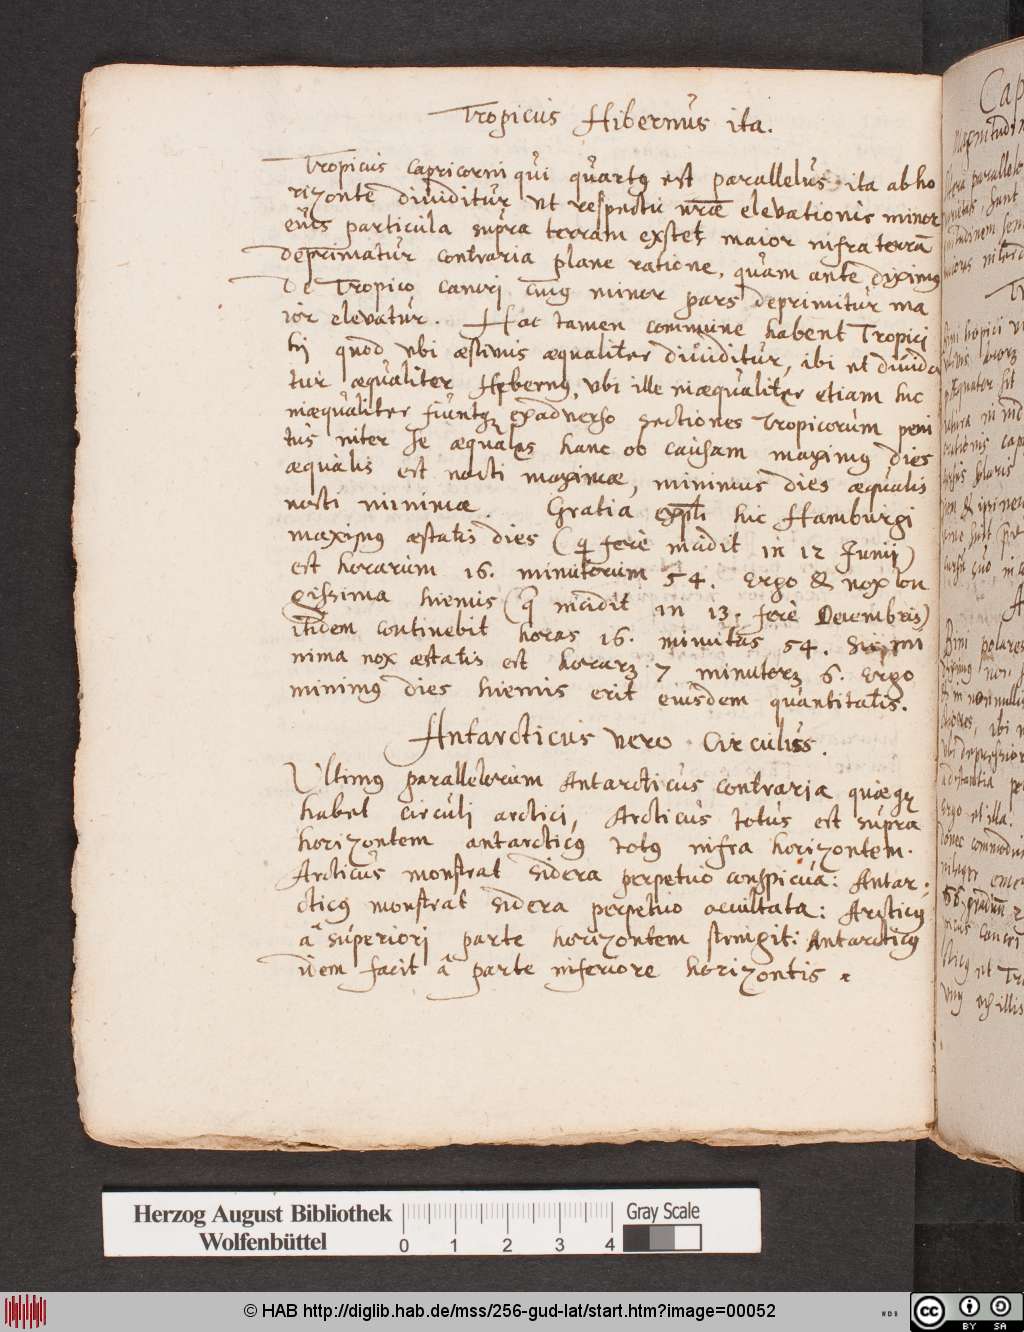 Tropicus Hibernus ita.
Tropicus capricorni qui quartus est parallelus ita ab ho
rizonte diuiditur ut respectu nrae eleuationis minor
eius particula supra terram exstet maior infra terrã
deprimatur contraria plane ratione, quam ante diximus
de Tropico cancri cuius minor pars deprimitur ma
ior eleuatur. Hoc tamen commune habent Tropici
hi quod ubi aestiuus aequaliter diuiditur, ibi et diuida
tur aequaliter Hybernus, ubi ille inaequaliter etiam hic
inaequaliter fiuntque exaduerso sectiones Tropicorum peni
tus inter se aequales hanc ob causam maximus dies
aequalis est nocti maximae, minimus dies aequalis
nocti minimae. Gratia expli hic Hamburgi
maximus aestatis dies (q ferè incidit in 12 Junij)
est horarum 16. minutorum 54. Ergo & nox lon
gissima hiemis (q incidit in 13. ferè Decembris)
itidem continebit horas 16. minutas 54. Sic mi
nima nox aestatis est horarum 7 minutorum 6. Ergo
minimus dies hiemis erit eiusdem quantitatis.
Antarcticus vero Circulus.
Ultimus parallelorum Antarcticus contraria quaeque
habet circuli arctici, Arcticus totus est supra
horizontem antarcticus totus infra horizontem.
Arcticus monstrat sidera perpetuo conspicua: Antar-
cticus monstrat sidera perpetuo occultata: Arcticus
â superiori parte horizontem stringit: Antarcticus
idem facit â parte inferiore horizontis
Cap
Herzog August Bibliothek
Wolfenbüttel
0 1 2 3 4
Gray Scale
© HAB http://diglib.hab.de/mss/256-gud-lat/start.htm?image=00052
WDB
cc BY SA